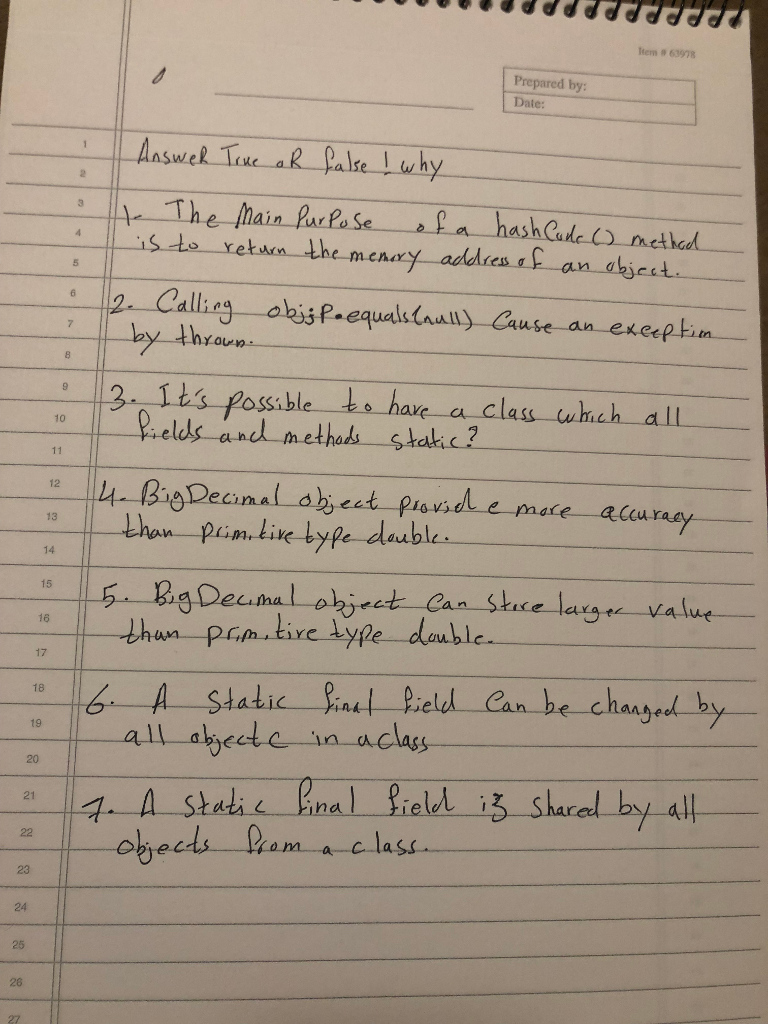 Item # 63978
Prepared by:
Date:
1
2
3
4
5
6
7
8
9
10
11
12
13
14
15
16
17
18
19
20
21
22
23
24
25
26
27
Answer True or false ! why
1- The Main Purpose of a hashCode() method
is to return the memory address of an object.
2. Calling objjP.equals(null) Cause an exception
by thrown.
3. It's possible to have a class which all
fields and methods static?
4. BigDecimal object provide more accuracy
than primitive type double.
5. BigDecimal object Can Store larger value
than primitive type double.
6. A Static final field Can be changed by
all objectc in a class
7. A Static final field is Shared by all
objects from a class.